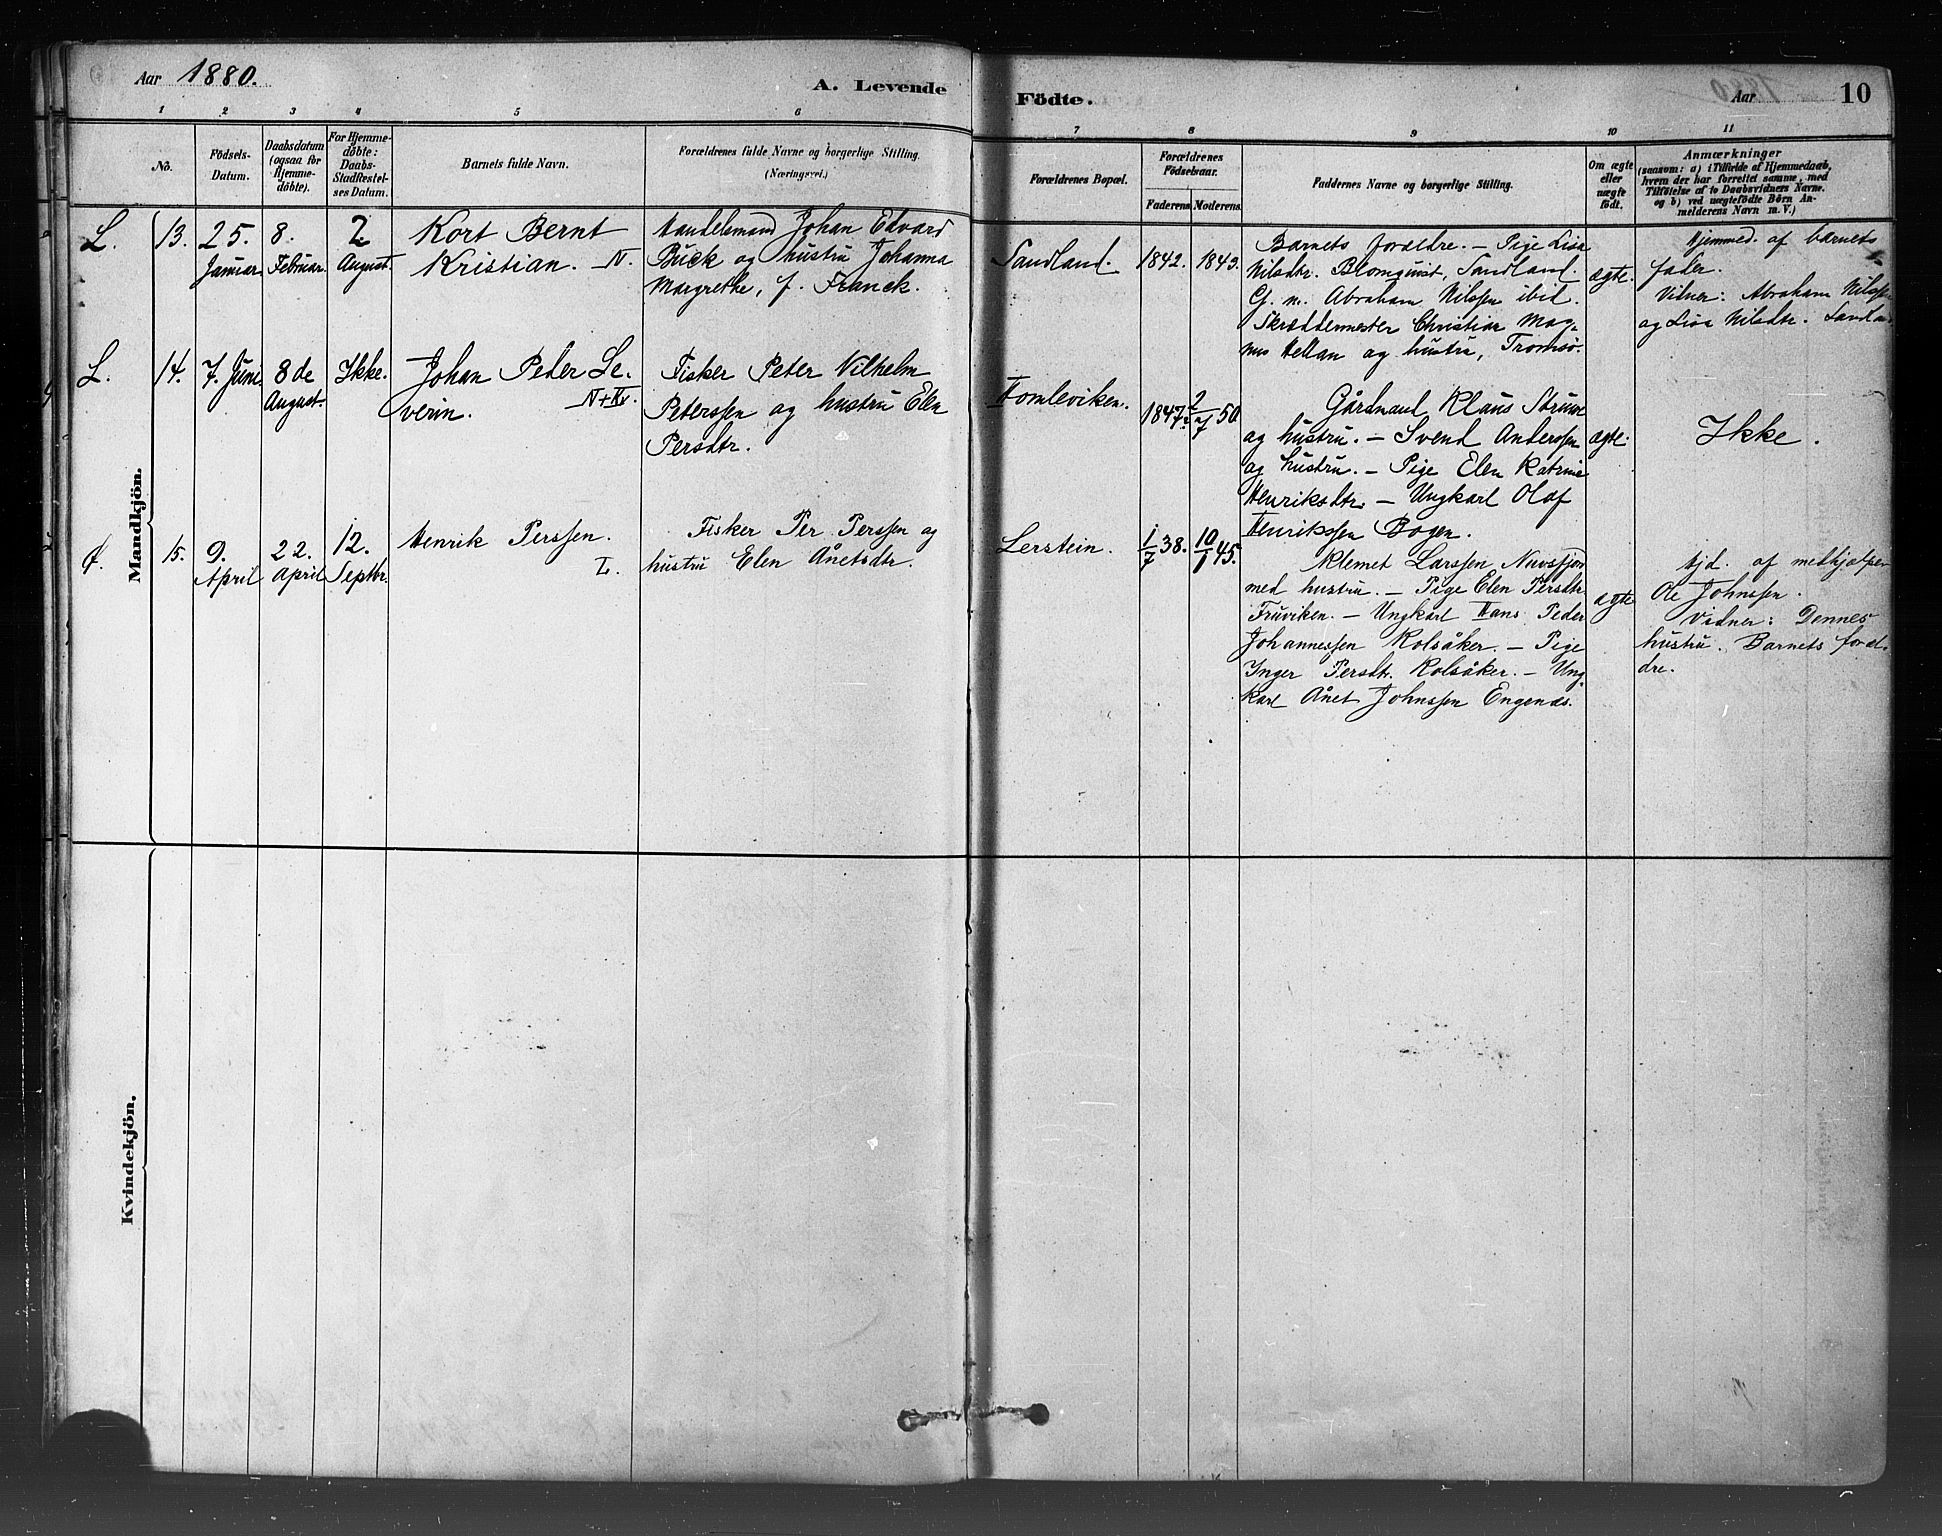 Aar 1880.
A. Levende
Födte.
Aar
10
1 2 3 4 5 6
7 8 9 10 11
No.
Födsels-
Datum.
Daabsdatum
(ogsaa for
Hjemme-
döbte).
For Hjemme-
döbte:
Daabs-
Stadfæstel-
ses Datum.
Barnets fulde Navn.
Forældrenes fulde Navne og borgerlige Stilling.
(Næringsvei.)
Forældrenes Bopæl.
Forældrenes
Födselsaar.
Faderens
Moderens.
Faddernes Navne og borgerlige Stilling.
Om ægte
eller
uægte
födt.
Anmærkninger
(saasom: a) i Tilfælde af Hjemmedaab,
hvem der har forrettet samme, med
Tilföielse af to Daabsvidners Navne.
og b) ved uægtefödte Börn An-
melderens Navn m. V.)
Mandkjön.
L. 13. 25. Januar 8. Februar. 2 August.
Kort Bernt
Kristian. N.
Handelsmand Johan Edvard
Buck og hustru Johanna
Margrethe, f. Franck.
Sandland. 1842. 1843.
Barnets forældre. – Pige Lisa
Nilsdtr. Blomqvist, Sandland.
G. m. Abraham Nilssen ibid.
Skræddermester Christian Mag-
nus Hellan og hustru, Tromsö.
ægte.
Hjemmed. af barnets
fader.
Vidner: Abraham Nilssen
og Lisa Nilsdtr. Sandland
L. 14. 7. Juni 8de August. Ikke.
Johan Peder Se-
verin. N+Kv.
Fisker Peter Vilhelm
Peterssen og hustru Elen
Persdtr.
Tomleviken. 1847. 2/7 50
Gårdmand Klaus Struve
og hustru. – Svend Anderssen
og hustru. – Pige Elen Katrine
Henriksdtr. – Ungkarl Olaf
Henrikssen Bogen.
ægte.
Ikke.
15. 9. April 22. April 12. Septbr.
Henrik Perssen.
L.
Fisker Per Perssen og
hustru Elen Ånetsdtr.
Lerstein. 1/7 38. 10/1 45.
Klemet Larssen Nuvsfjord
med hustru. – Pige Elen Persdtr.
Fruviken. – Ungkarl Hans Peder
Johannessen Kolsåker. – Pige
Inger Persdtr. Kolsåker. – Ung-
karl Ånet Johnssen Engenæs.
ægte
Hjd. af medhjælper
Ole Johnssen.
Vidner: Dennes
hustru. Barnets foræl-
dre.
Kvindekjön.